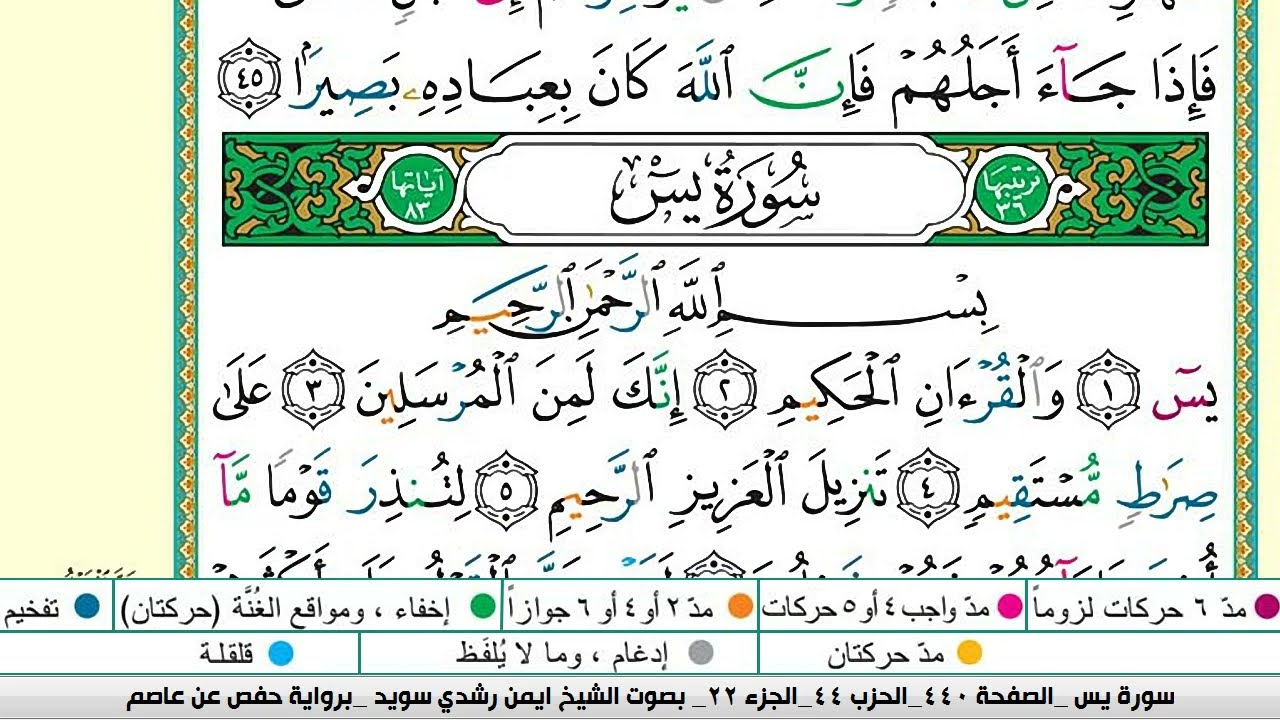 فَإِذَا جَآءَ أَجَلُهُمْ فَإِنَّ ٱللَّهَ كَانَ بِعِبَادِهِۦ بَصِيرًۢا ٤٥
ترتيبها ٣٦ سُورَةُ يسٓ آياتها ٨٣
بِسْمِ ٱللَّهِ ٱلرَّحْمَٰنِ ٱلرَّحِيمِ
يسٓ ١ وَٱلْقُرْءَانِ ٱلْحَكِيمِ ٢ إِنَّكَ لَمِنَ ٱلْمُرْسَلِينَ ٣ عَلَىٰ
صِرَٰطٍ مُّسْتَقِيمٍ ٤ تَنزِيلَ ٱلْعَزِيزِ ٱلرَّحِيمِ ٥ لِتُنذِرَ قَوْمًا مَّآ
مدّ ٦ حركات لزوماً مدّ واجب ٤ أو ٥ حركات مدّ ٢ أو ٤ أو ٦ جوازاً إخفاء ، ومواقع الغُنَّة (حركتان) تفخيم
مدّ حركتان إدغام ، وما لا يُلفَظ قلقلة
سورة يس _الصفحة ٤٤٠_الحزب ٤٤_الجزء ٢٢_ بصوت الشيخ ايمن رشدي سويد _برواية حفص عن عاصم